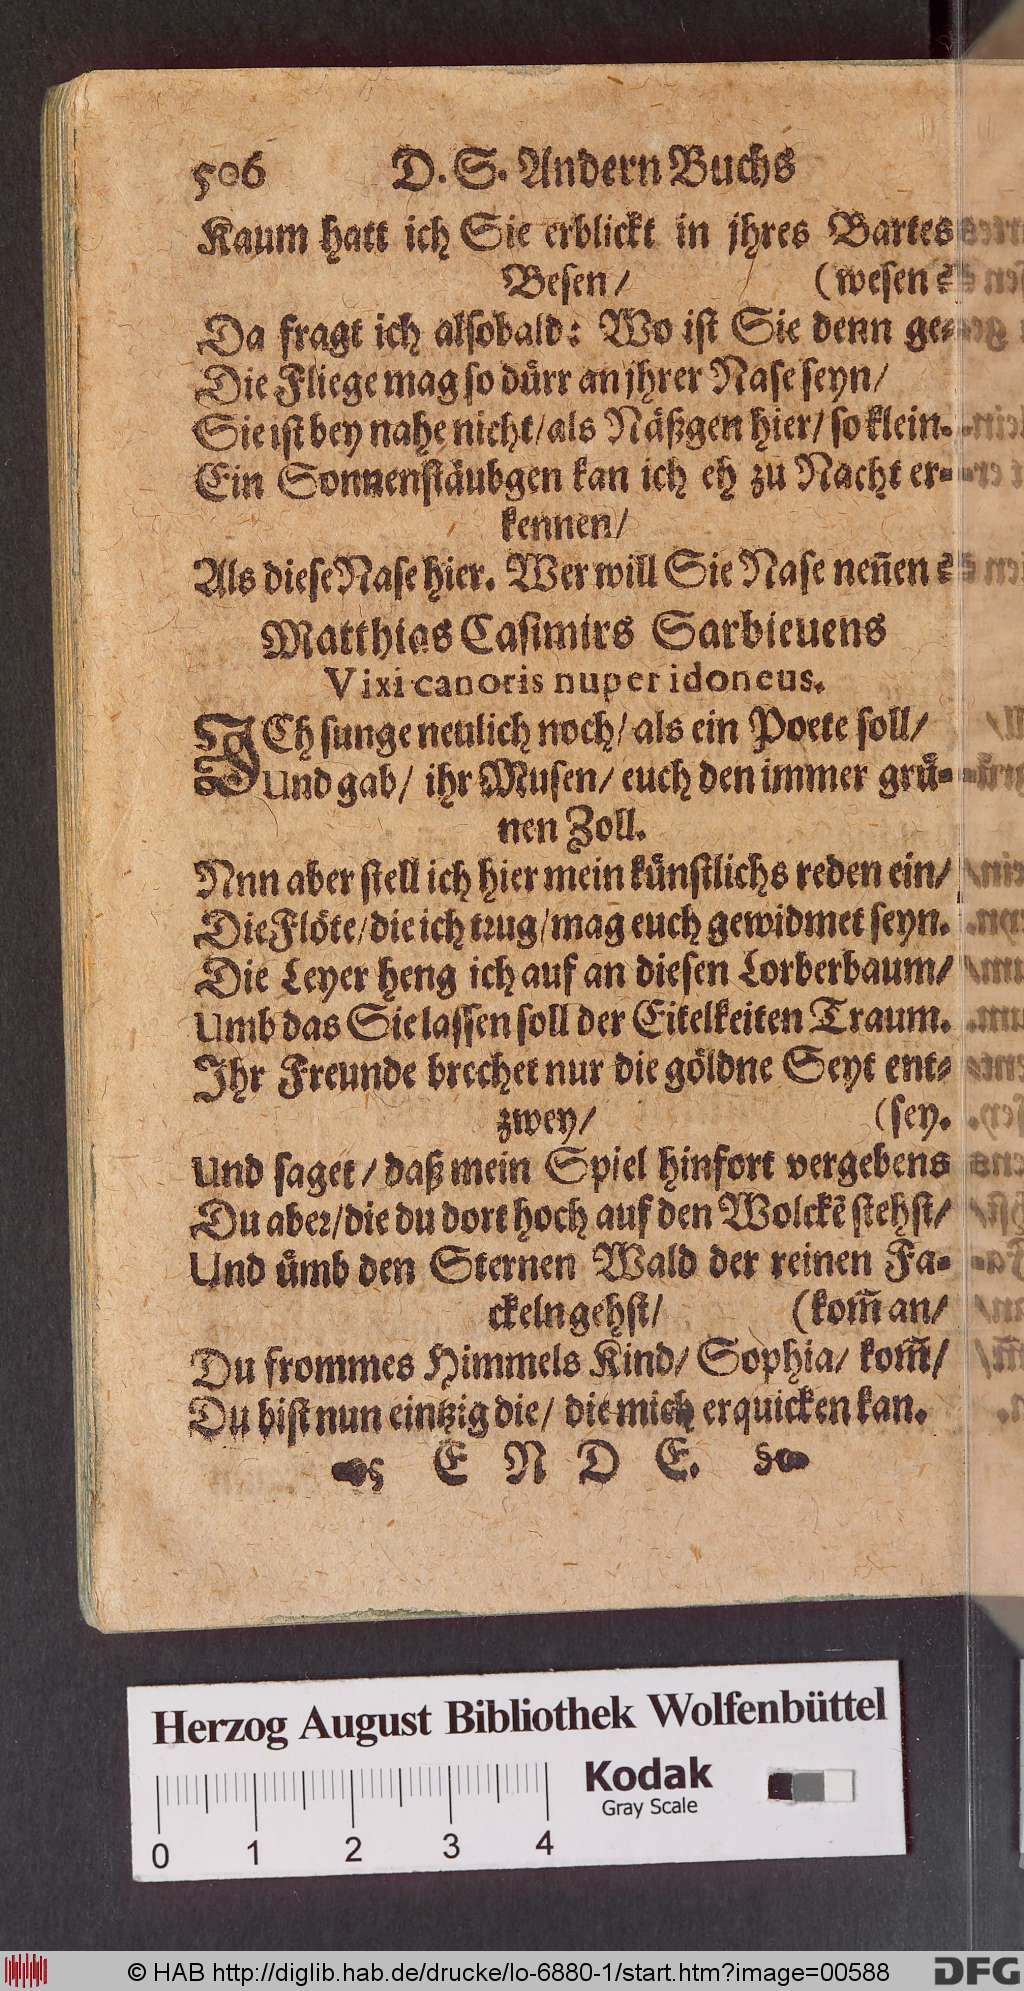 506 D. S. Andern Buchs
Kaum hatt ich Sie erblickt in jhres Bartes
Besen / (wesen?
Da fragt ich alsobald: Wo ist Sie denn ge-
Die Fliege mag so dürr an jhrer Nase seyn /
Sie ist bey nahe nicht / als Näßgen hier / so klein.
Ein Sonnenstäubgen kan ich eh zu Nacht er-
kennen /
Als diese Nase hier. Wer will Sie Nase neñen?
Matthias Casimirs Sarbievens
Vixi canoris nuper idoneus.
ICh sunge neulich noch / als ein Poete soll /
Und gab / ihr Musen / euch den immer gruͤ-
nen Zoll.
Nnn aber stell ich hier mein kuͤnstlichs reden ein /
Die Flöte / die ich trug / mag euch gewidmet seyn.
Die Leyer heng ich auf an diesen Lorberbaum /
Umb das Sie lassen soll der Eitelkeiten Traum.
Ihr Freunde brechet nur die göldne Seyt ent-
zwey / (sey.
Und saget / daß mein Spiel hinfort vergebens
Du aber / die du dort hoch auf den Wolckẽ stehst /
Und uͤmb den Sternen Wald der reinen Fa-
ckeln gehst / (kom̃ an /
Du frommes Himmels Kind / Sophia / kom̃ /
Du bist nun eintzig die / die mich erquicken kan.
E N D E.
Herzog August Bibliothek Wolfenbüttel
Kodak
Gray Scale
0 1 2 3 4
© HAB http://diglib.hab.de/drucke/lo-6880-1/start.htm?image=00588
DFG